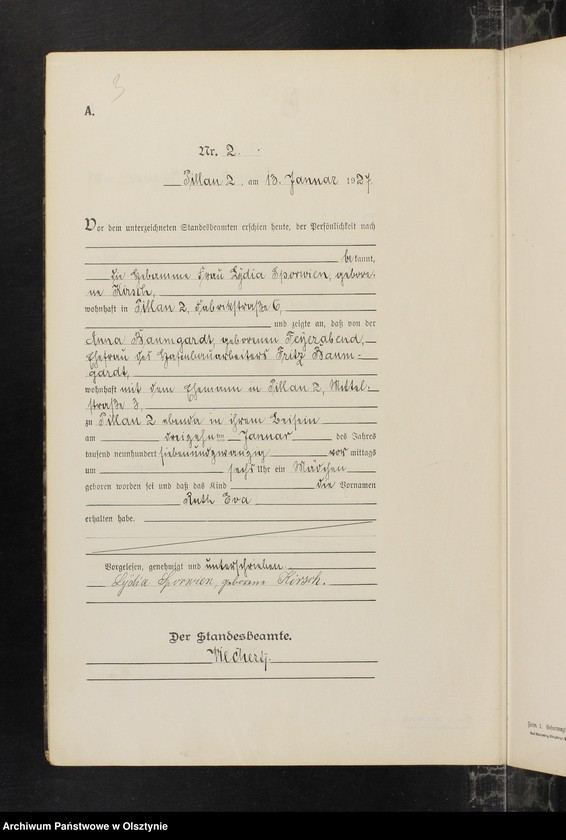 A.
Nr. 2.
Pillau 2. am 13. Januar 1927
Vor dem unterzeichneten Standesbeamten erschien heute, der Persönlichkeit nach
bekannt,
die Hebamme Frau Lydia Sporwien, gebore-
ne Kirsch,
wohnhaft in Pillau 2, Fabrikstraße 6,
und zeigte an, daß von der
Anna Baumgardt, geborenen Feyerabend,
Ehefrau des Hafenbauarbeiters Fritz Baum-
gardt,
wohnhaft mit dem Ehemann in Pillau 2, Mittel-
straße 3,
zu Pillau 2 ebenda in ihrem Beisein
am dreizehnten Januar des Jahres
tausend neunhundert siebenundzwanzig vormittags
um sechs Uhr ein Mädchen
geboren worden sei und daß das Kind die Vornamen
Ruth Eva
erhalten habe.
Vorgelesen, genehmigt und unterschrieben
Lydia Sporwien, geborene Kirsch.
Der Standesbeamte.
Archiwum Państwowe w Olsztynie